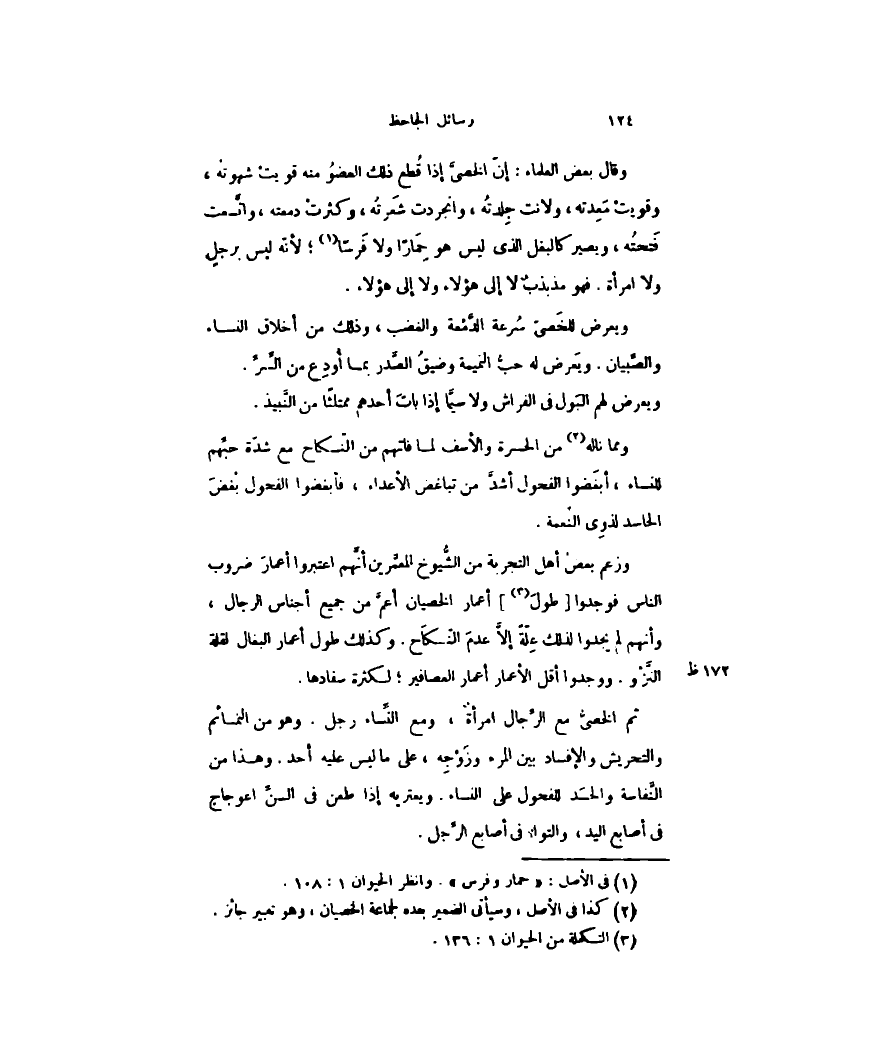 ١٢٤ رسائل الجاحظ
وقال بعض العلماء : إنّ الخصيَّ إذا قُطع ذلك العضوُ منه قويتْ شهوتُه ،
وقويتْ مَعِدته ، ولانت جِلدتُه ، وانجردت شَعرتُه ، وكثرتْ دمعته ، واتَّسعت
فَتحتُه ، ويصير كالبغل الذى ليس هو حِمَارًا ولا فَرسًا(١) ؛ لأنّه ليس برجلٍ
ولا امرأة . فهو مذبذبٌ لا إلى هؤلاء ولا إلى هؤلاء .
ويعرض للخَصىّ سُرعة الدَّمْعة والغضب ، وذلك من أخلاق النساء
والصِّبيان . ويَعرض له حبُّ النميمة وضيقُ الصَّدر بما أُودِع من السِّرّ .
ويعرض لهم البَول فى الفراش ولا سيَّما إذا باتَ أحدهم ممتلئًا من النَّبيذ .
ومما ناله(٢) من الحسرة والأسف لما فاتهم من النّكاح مع شدّة حبِّهم
للنساء ، أبغَضوا الفحول أشدَّ من تباغض الأعداء ، فأبغضوا الفحول بُغضَ
الحاسد لذوِى النّعمة .
وزعم بعضُ أهل التجربة من الشُّيوخ المعمَّرين أنَّهم اعتبروا أعمارَ ضروب
الناس فوجدوا [ طولَ(٣) ] أعمار الخصيان أعمَّ من جميع أجناس الرجال ،
وأنهم لم يجدوا لذلك عِلّةً إلاَّ عدمَ النّكاح . وكذلك طول أعمار البغال لقلة
النَّزْو . ووجدوا أقل الأعمار أعمار العصافير ؛ لكثرة سفادها . ١٧٢ ظ
ثم الخصىُّ مع الرِّجال امرأةٌ ، ومع النِّساء رجل . وهو من النمائم
والتحريش والإفساد بين المرء وزَوْجِه ، على ما ليس عليه أحد . وهذا من
النَّفاسة والحَسَد للفحول على النساء . ويعتريه إذا طعن فى السنّ اعوجاج
فى أصابع اليد ، والتواء فى أصابع الرِّجل .
(١) فى الأصل : « حمار وفرس » . وانظر الحيوان ١ : ١٠٨ .
(٢) كذا فى الأصل ، وسيأتى الضمير بعده لجماعة الخصيان ، وهو تعبير جائز .
(٣) التكملة من الحيوان ١ : ١٣٦ .